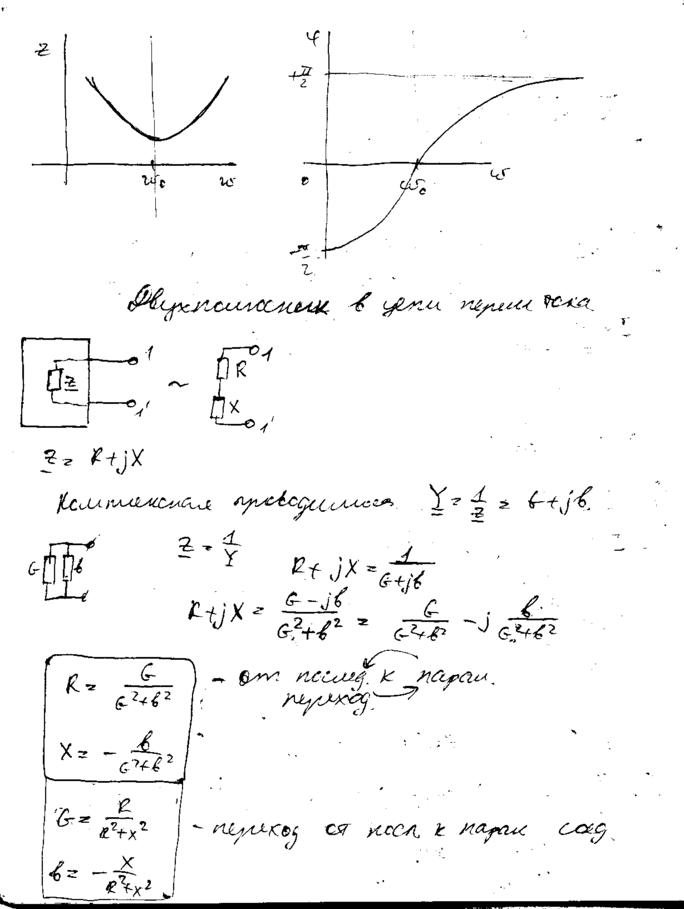 Z
ω₀ ω
φ
+π/2
0 ω₀ ω
-π/2
Двухполюсник в цепи перем тока
Z 1 1' ~ R X 1 1'
Z = R+jX
Комплексная проводимость Y = 1/Z = G+jв.
G в Z = 1/Y R+jX = 1/(G+jв)
R+jX = (G-jв)/(G²+в²) = G/(G²+в²) - j в/(G²+в²)
R = G/(G²+в²) - от послед. к парал.
переход
X = - в/(G²+в²)
G = R/(R²+x²) - переход от посл. к парал соед.
в = - X/(R²+x²)